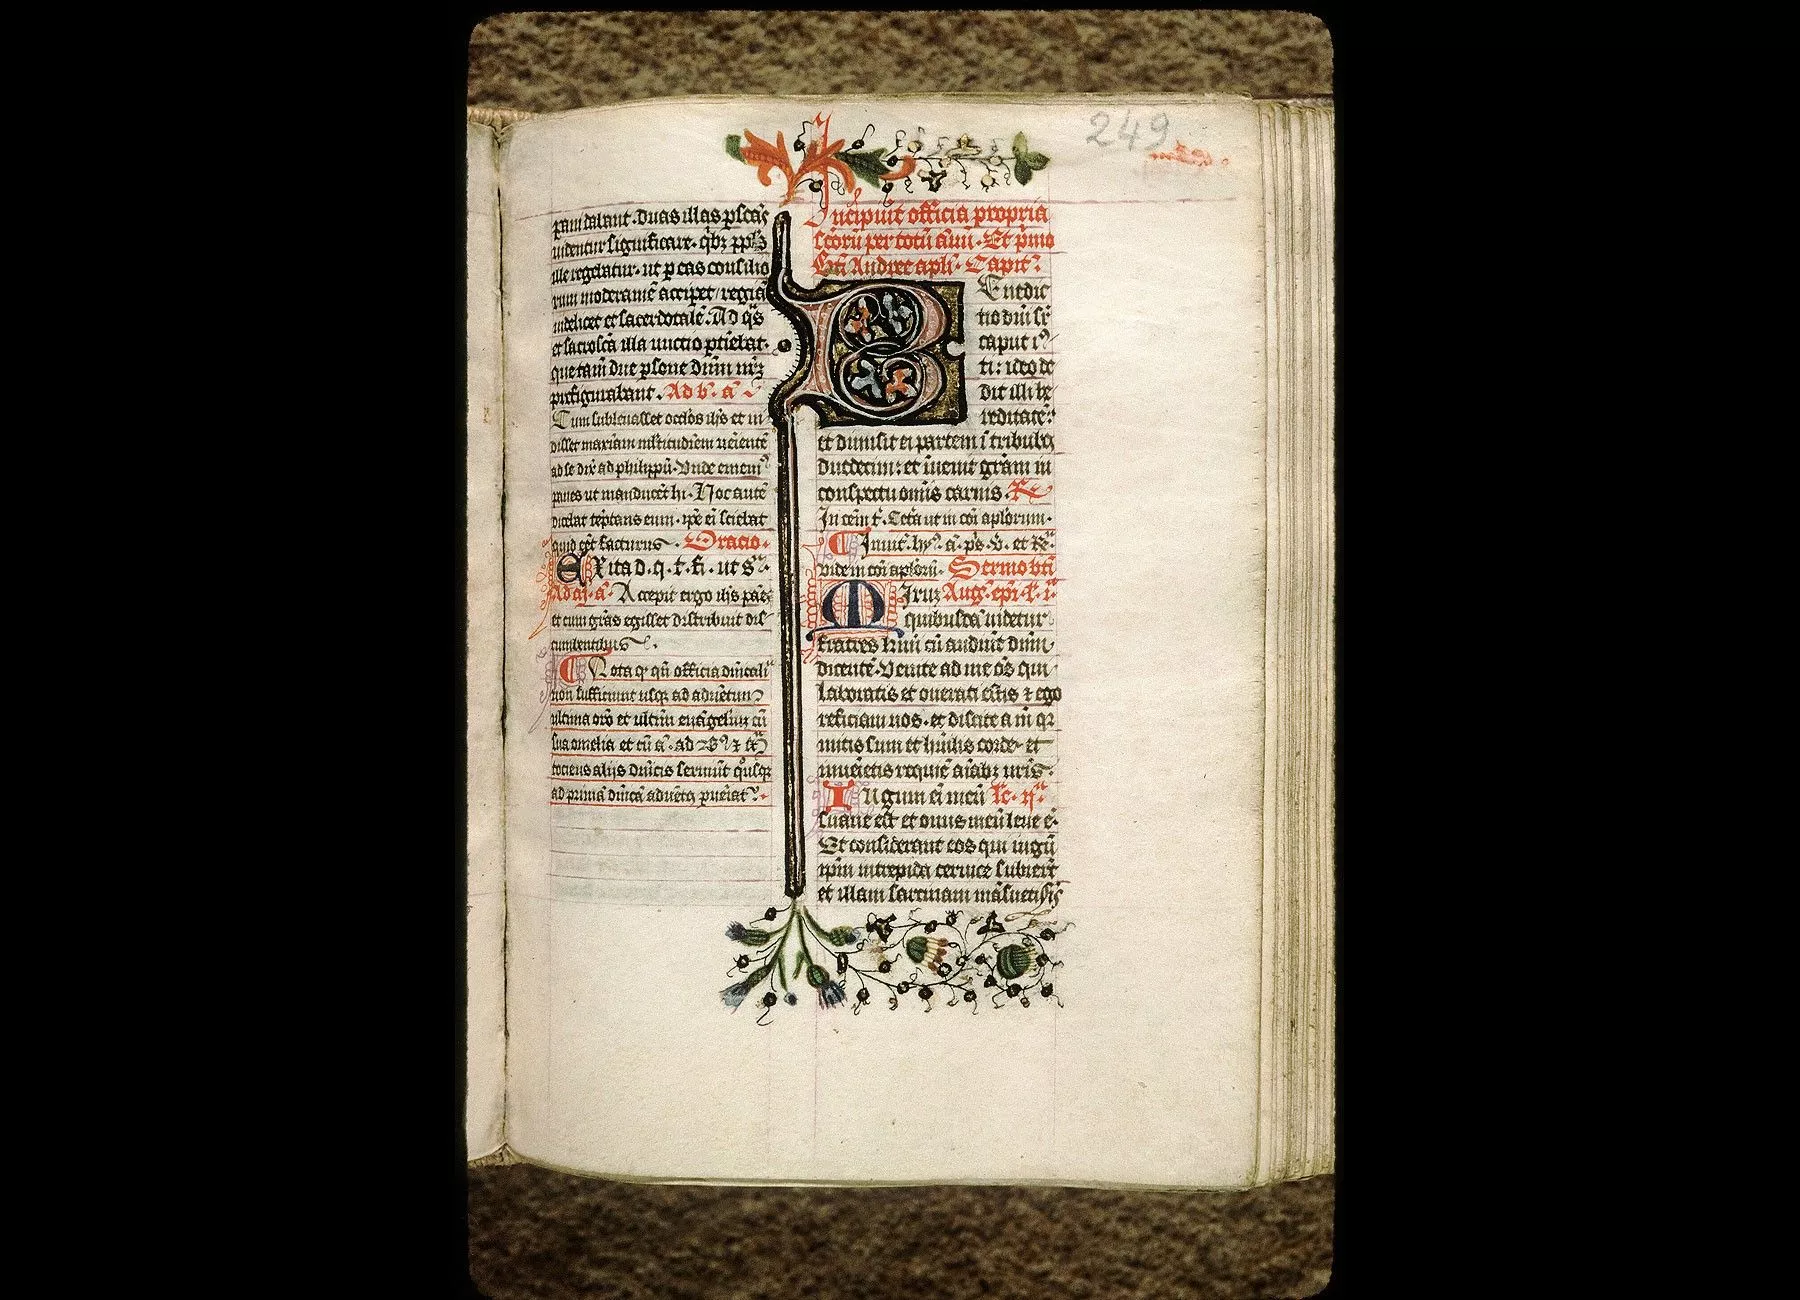 249
rant dabant. duas illas pſcās
videntur ſignificare. qb3 pp̄ls
ille regebatur. ut p eas conſilio
rum moderamē acciperet / regiā
videlicet et ſacerdotalē. Ad q̄s
et ſacroſcā illa unctio ptinebat.
que tam̄ due pſone dn̄m nr̄3
prefigurabant. Ad b. a
Cum ſubleuaſſet oclōs ih̄s et vi
diſſet maximam multitudinem veniente
ad ſe dix̄ ad philippū. Unde ememꝰ
panes ut manducēt hi. Hoc autē
dicebat temptans eum. ipſe ei ſciebat
quid eēt facturus. Oracio.
EXita d. q. t. fi. ut sᵃ.
Ad a. Accepit ergo ih̄s panes
et cum grās egiſſet diſtribuit diſ
cumbentibus.
Nota q qn̄ officia dn̄icalia
non ſufficiunt uſq ad aduētum
ultima orō et ultim̄ euāgeliu3 cū
ſua omelia et cū a. ad
tociens alijs dn̄icis ſeruiūt quſq
ad primā dn̄icā aduētꝰ pueniat.
Incipiunt officia propria
ſctōrū per totū annū. Et p̄mo
ſcī Andree apl̄i. Capit̄.
BEnedic
tio dn̄i ſr̄
caput iuꝰ
ti: ideo de
dit illi he
reditatē:
et diuiſit ei partem ī tribubꝫ
duodecim: et īuenit grām in
conſpectu omīs carnis. R
In oēm t̄. Cetā ut in cōi aplōrum.
Inuit. hyᵘ. a. ps. V. et R̄.
vide in cōi aplōrū. Sermo btī
MIrum Aug. epī. l. i.
quibuſdā videtur
fratres kmī cū audiūt dn̄m
dicentē. Venite ad me oēs qui
laboratis et onerati eſtis ⁊ ego
reficiam vos. et diſcite a m̄ qꝛ
mitis ſum et humilis corde et
inuenietis requiē aīabꝫ vrīs.
IUgum ei meū lc. ijᵃ
ſuaue eſt et onus meū leue ē.
Et conſiderant eos qui iugū
iſtm̄ intrepida ceruice ſubierūt
et illam ſarcinam māſuetiſſīs